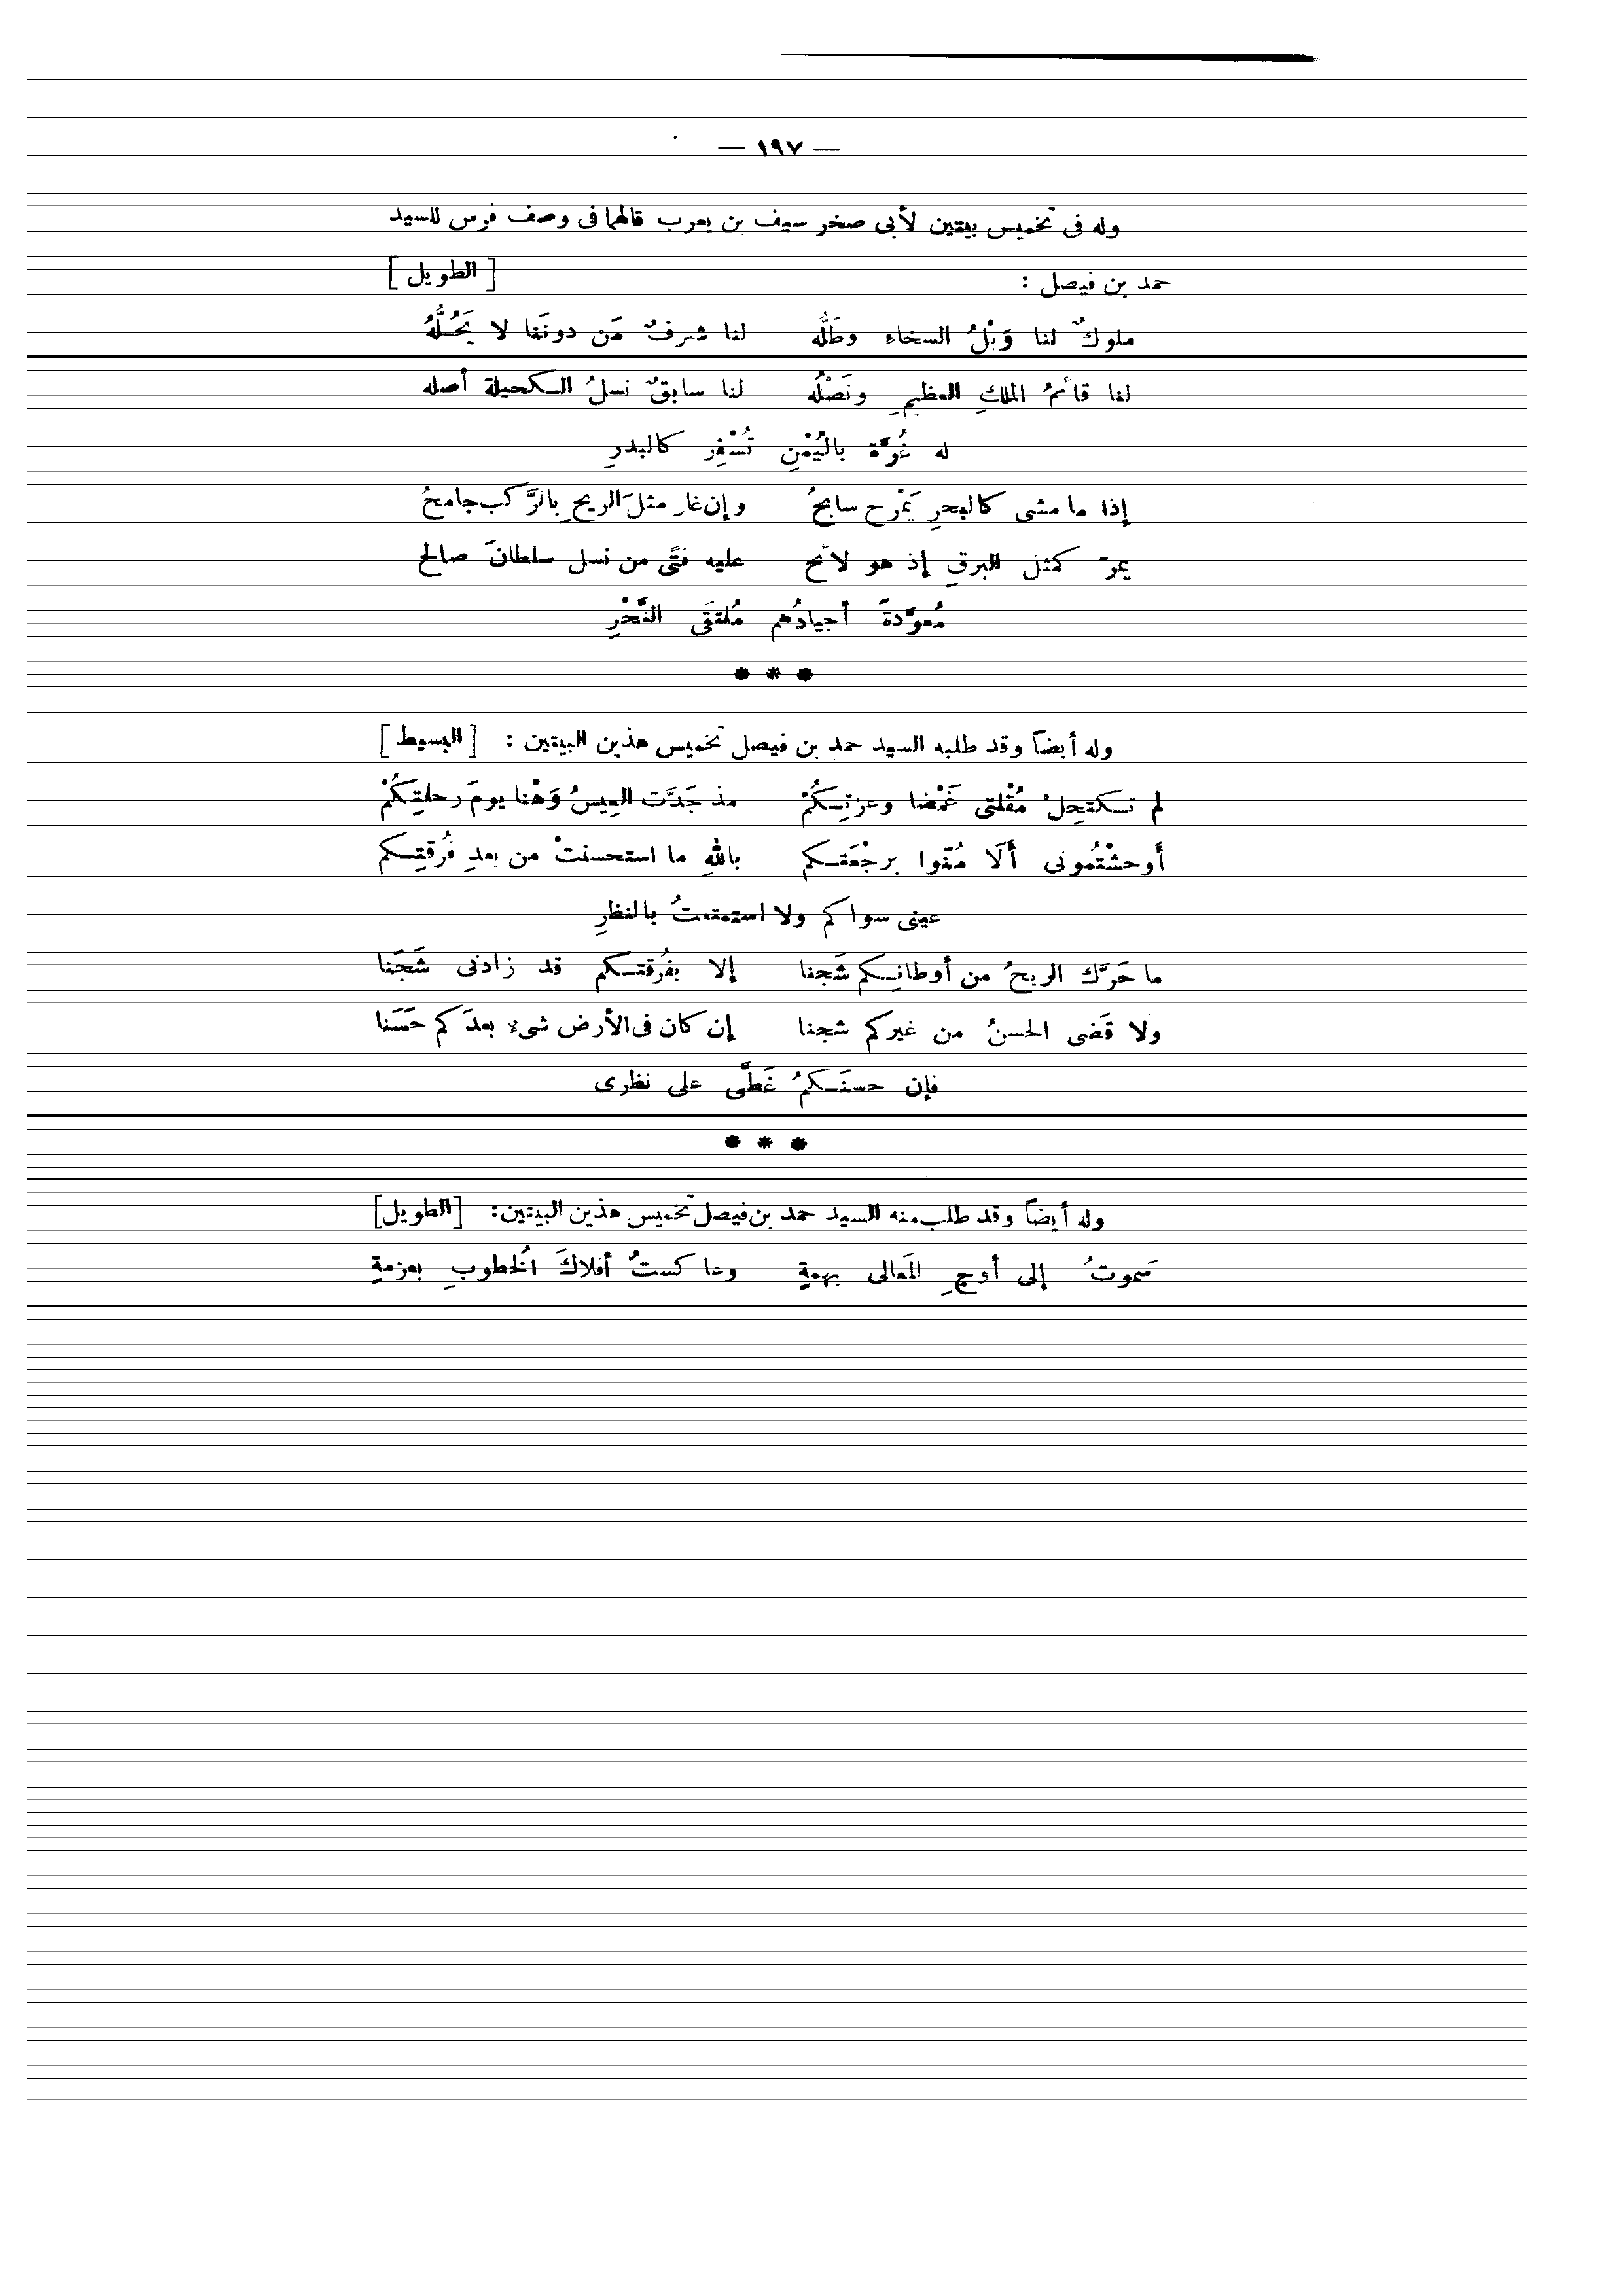 — ١٩٧ —
وله فى تخميس بيتين لأبى صخر سيف بن يعرب قالهما فى وصف فرس للسيد
حمد بن فيصل : [ الطويل ]
ملوكٌ لنا وَبْلُ السخاءِ وطَلُّه لنا شرفٌ مَن دونَنا لا يَحُلُّهُ
لنا قائمُ الملكِ العظيمِ ونَصْلُه لنا سابقٌ نسلُ الكحيلة أصله
له غُرَّة باليُمْنِ تُسْفِر كالبدرِ
إذا ما مشى كالبحرِ يَمْرح سابحُ وإن غار مثلَ الريحِ بالرَّكب جامحُ
يمرّ كمثل البرقِ إذ هو لائح عليه فتًى من نسل سلطانَ صالح
مُعوَّدةً أجيادُهم مُلتقَى النَّحْرِ
* * *
وله أيضاً وقد طلبه السيد حمد بن فيصل تخميس هذين البيتين : [ البسيط ]
لم تكتحِلْ مُقْلتى غَمْضا وعزتِكُمْ مذ جَدَّت العِيسُ وَهْنا يومَ رحلتِكُمْ
أَوحشْتُمونى أَلَا مُنّوا برجْعَتكم باللهِ ما استحسنتْ من بعدِ فُرقتِكم
عينى سواكم ولا استمتعتُ بالنظرِ
ما حَرَّك الريحُ من أوطانِكم شَجنا إلا بفُرقتكم قد زادنى شَجَنا
ولا قَضى الحسنُ من غيركم شجنا إن كان فى الأرض شىء بعدَكم حَسَنا
فإن حسنَكمُ غَطَّى على نظرى
* * *
وله أيضاً وقد طلب منه السيد حمد بن فيصل تخميس هذين البيتين : [الطويل]
سَموتُ إلى أوجِ المَعالى بهمةٍ وعاكستُ أفلاكَ الخُطوبِ بعزمةٍ